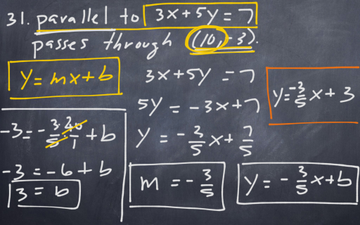 31. parallel to 3x+5y=7
passes through (10,-3).
y=mx+b
3x+5y=7
5y=-3x+7
y=-3/5x+7/5
m=-3/5
y=-3/5x+b
-3=-3/5·10/1+b
-3=-6+b
3=b
y=-3/5x+3